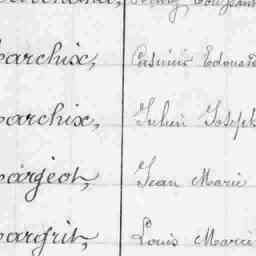 archix, Casimir Edouard
archix, Julien Joseph
argeot, Jean Marie
argrit, Louis Marie